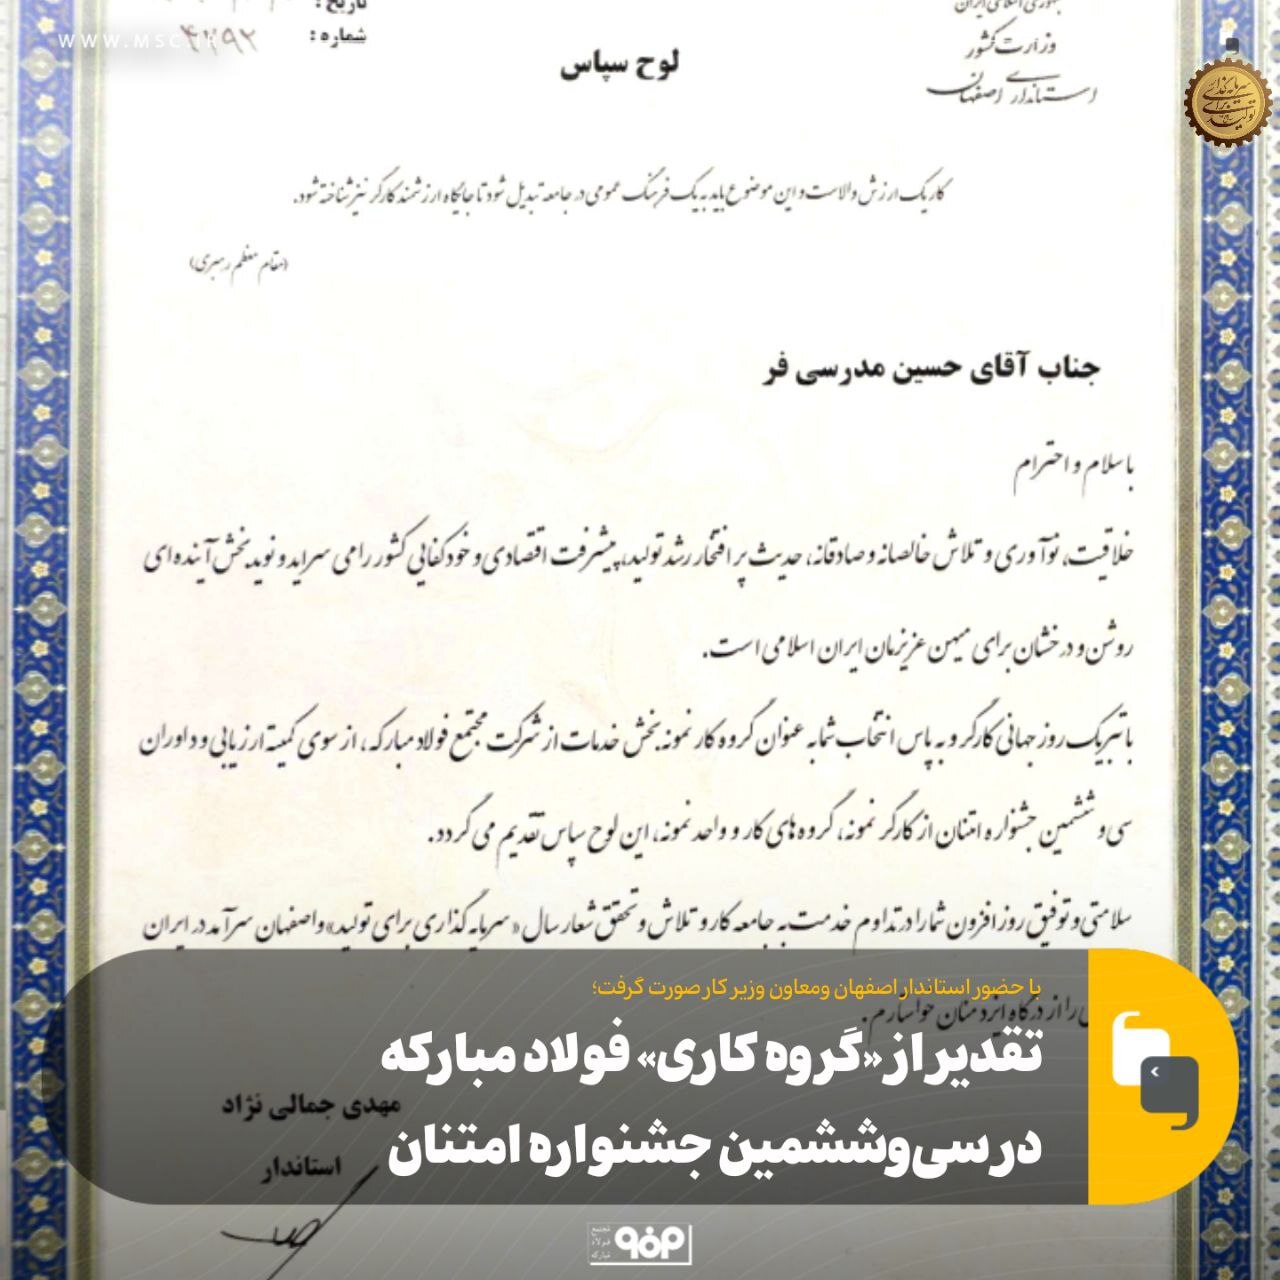 WWW.MSC.IR
تاریخ :
شماره :
۴۲۹۲
جمهوری اسلامی ایران
وزارت کشور
استانداری اصفهان
سرمایه گذاری
برای
تولید
لوح سپاس
کار یک ارزش والاست و این موضوع باید به یک فرهنگ عمومی در جامعه تبدیل شود تا جایگاه ارزشمند کارگر نیز شناخته شود.
(مقام معظم رهبری)
جناب آقای حسین مدرسی فر
با سلام و احترام
خلاقیت، نوآوری و تلاش خالصانه و صادقانه، حدیث پر افتخار رشد تولید، پیشرفت اقتصادی و خودکفایی کشور را می سراید و نوید بخش آینده ای
روشن و درخشان برای میهن عزیزمان ایران اسلامی است.
با تبریک روز جهانی کارگر و به پاس انتخاب شما به عنوان گروه کار نمونه بخش خدمات از شرکت مجتمع فولاد مبارکه، از سوی کمیته ارزیابی و داوران
سی و ششمین جشنواره امتنان از کارگر نمونه، گروه های کار و واحد نمونه، این لوح سپاس تقدیم می گردد.
سلامتی و توفیق روز افزون شما را در تداوم خدمت به جامعه کار و تلاش و تحقق شعار سال «سرمایه گذاری برای تولید» و اصفهان سرآمد در ایران
را از درگاه ایزد منان خواستارم.
با حضور استاندار اصفهان ومعاون وزیر کار صورت گرفت؛
تقدیر از «گروه کاری» فولاد مبارکه
در سی‌وششمین جشنواره امتنان
مهدی جمالی نژاد
استاندار
مجتمع
فولاد
مبارکه